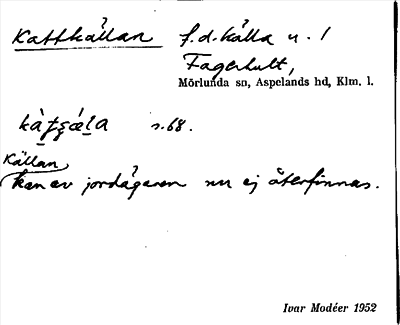 Kattkällan f.d. källa n. 1
Fagerhult,
Mörlunda sn, Aspelands hd, Klm. l.
s. 68.
Källan
kan av jordägaren nu ej återfinnas.
Ivar Modéer 1952